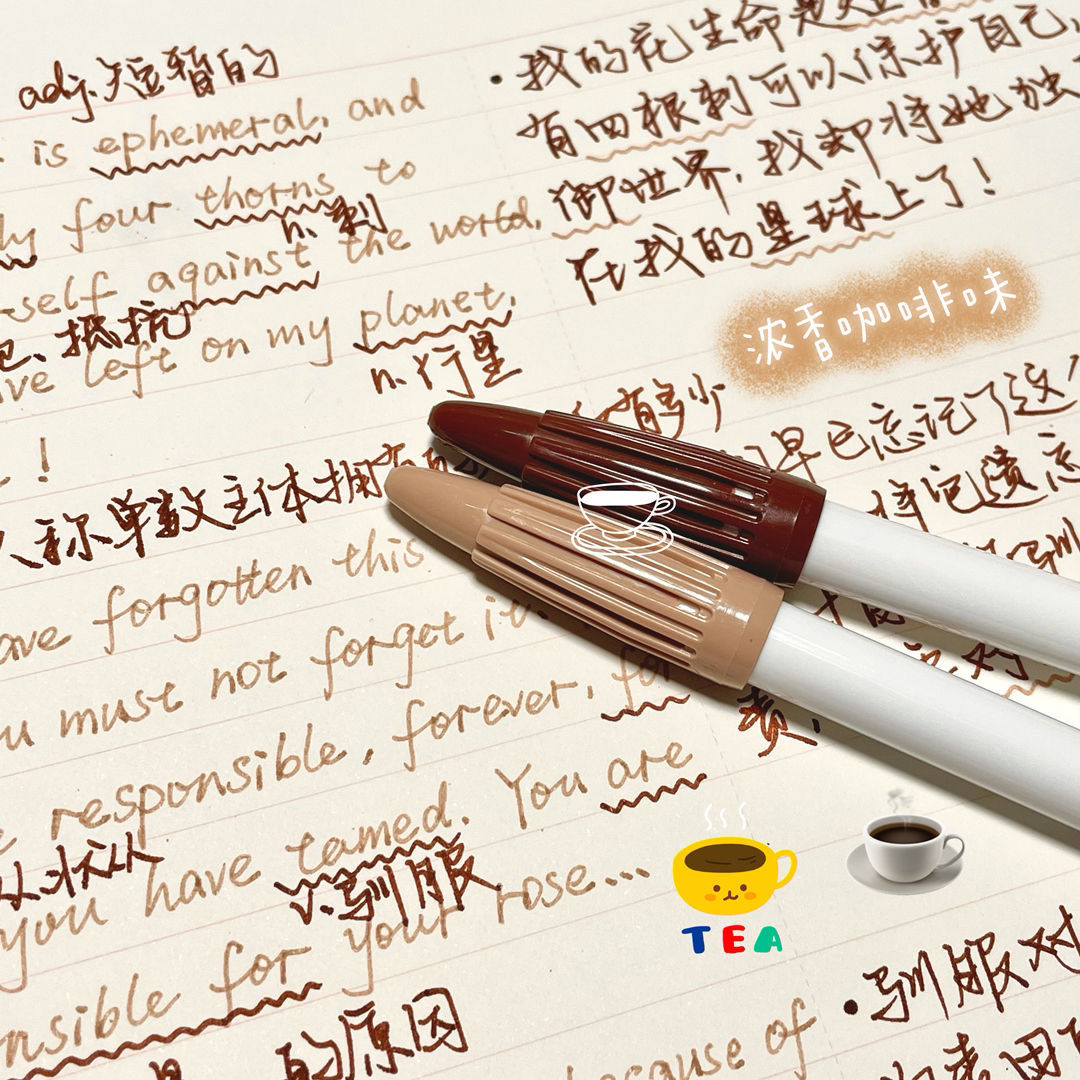 adj. 短暂的
is ephemeral, and
four thorns to
n. 刺
self against the world,
抵抗
left on my planet,
n. 行星
!
人称单数主体拥有
have forgotten this
must not forget it.
responsible, forever, for
you have tamed. You are
v. 驯服
for your rose...
的原因
because of
• 我的花生命是短暂
有四根刺可以保护自己,
御世界, 我却将她独
在我的星球上了!
浓香咖啡味
有多少
早已忘记了这
将记
责,
TEA
• 驯服对